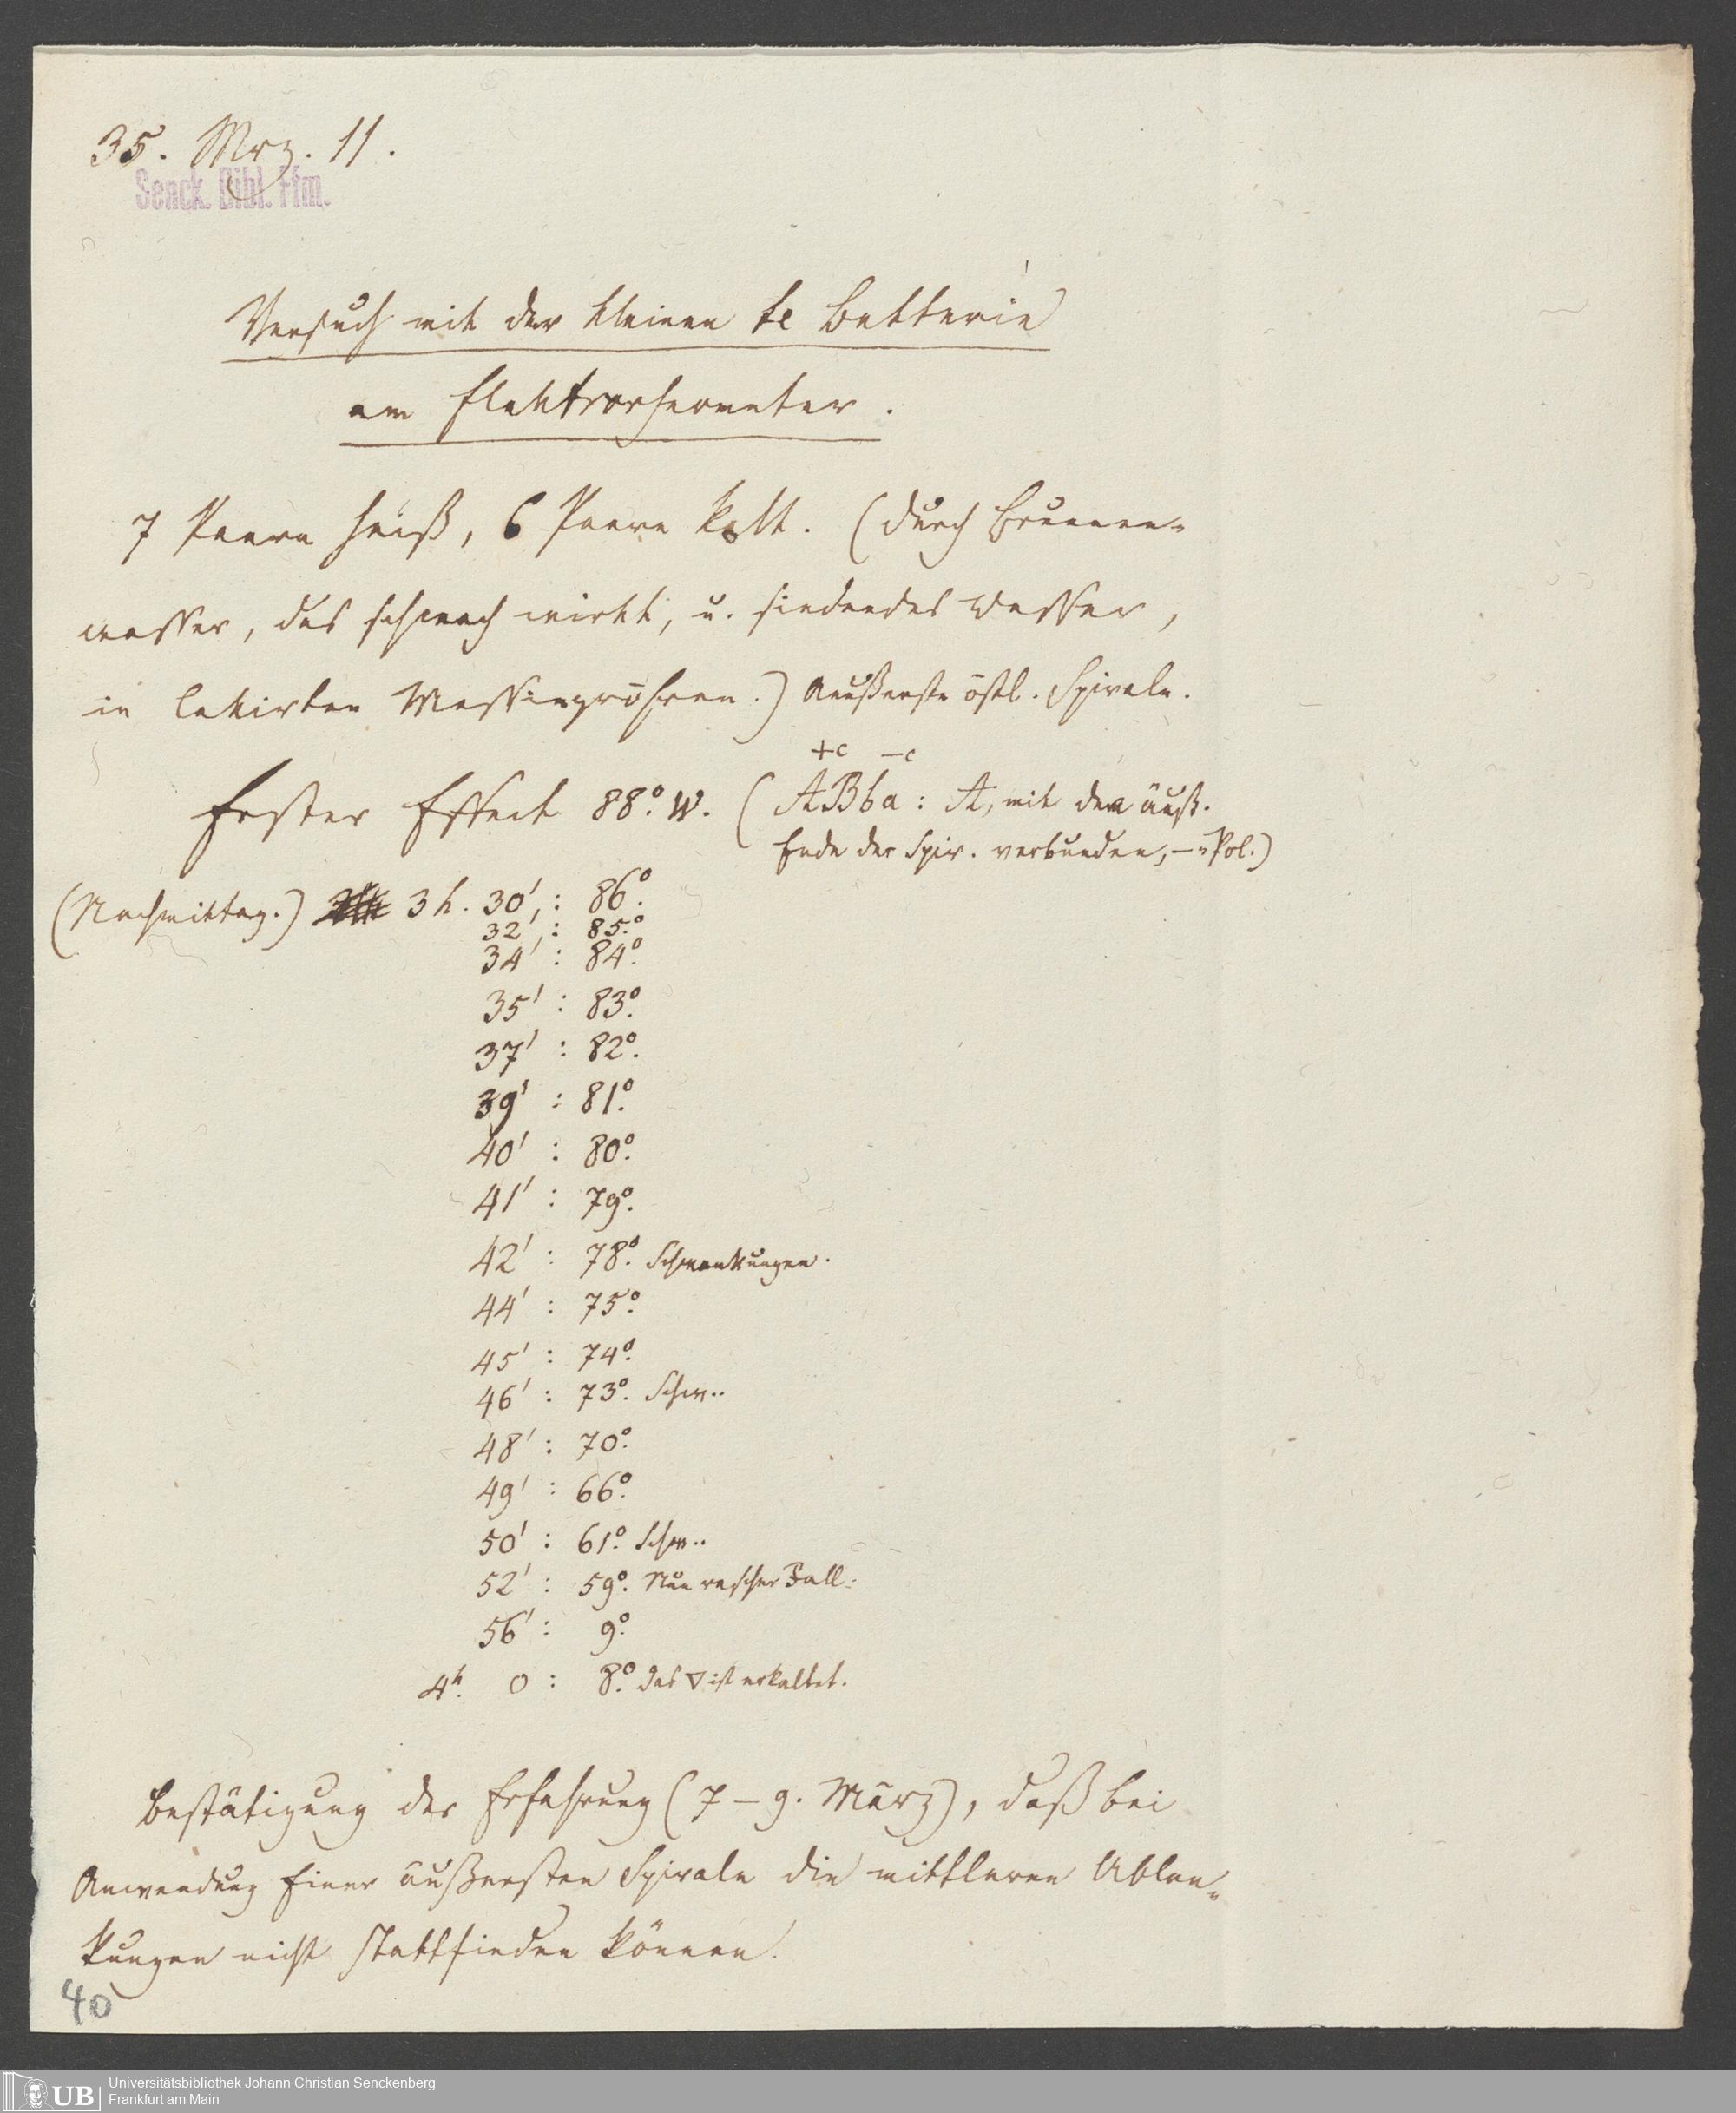 35. Mrz. 11.
Senck. Bibl. Ffm.
Versuch mit der kleinen te Batterie
am Elektrorheometer.
7 Paare heiß, 6 Paare kalt. (durch Brunnen-
wasser, das schwach wirkt, u. siedendes Wasser,
in lakirten Messingröhren.) Aeußerste östl. Spirale.
+c –c
Erster Effect 88°. W. (ABba: A, mit dem äuß.
Ende der Spir. verbunden, – Pol.)
(Nachmittag.) 3 h. 30',: 86°.
32',: 85.°
34': 84°.
35': 83°.
37': 82°.
39': 81°.
40': 80°.
41': 79°.
42': 78°. Schwankungen.
44': 75°.
45': 74°.
46': 73°. Schw..
48': 70°.
49': 66°.
50': 61°. Schw..
52': 59°. Nun rascher Fall:
56': 9°.
4h. 0: 8°. das ▽ ist erkaltet.
Bestätigung der Erfahrung (7–9. März), daß bei
Anwendung Einer äußersten Spirale die mittleren Ablen-
kungen nicht stattfinden können.
40
UB
Universitätsbibliothek Johann Christian Senckenberg
Frankfurt am Main